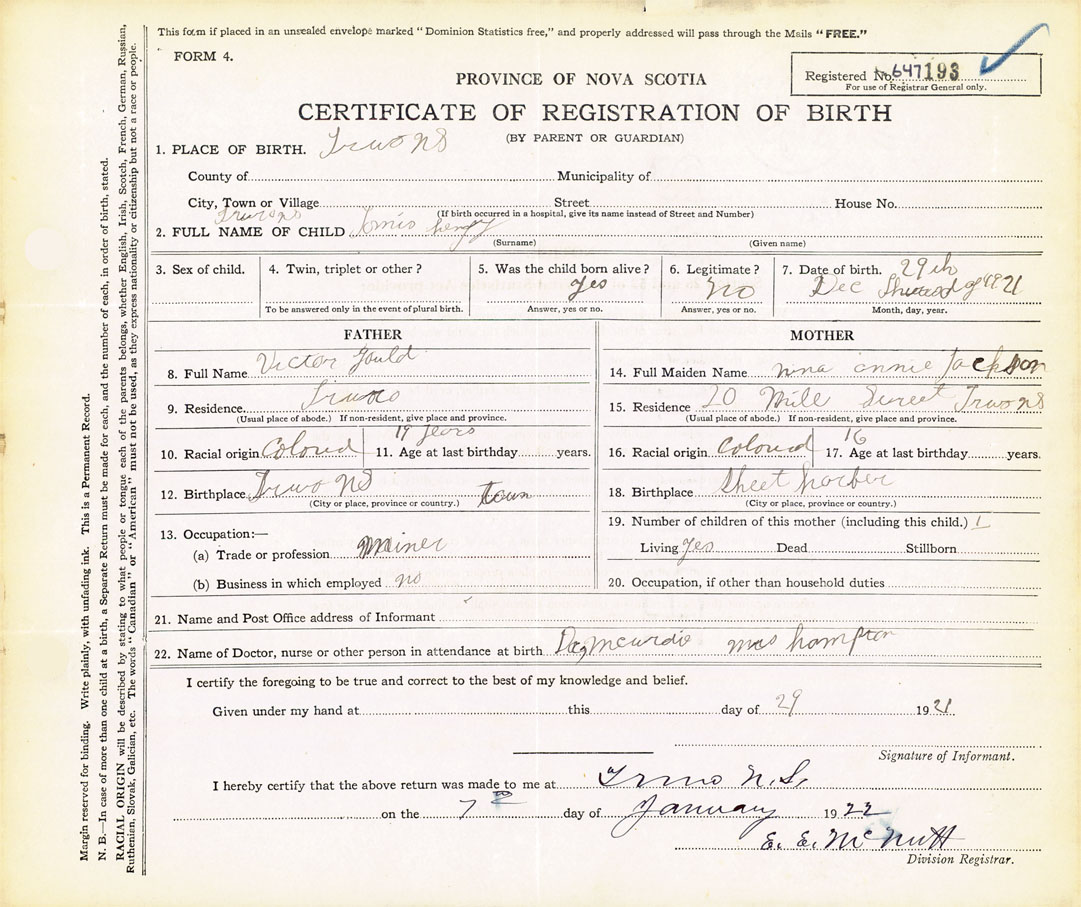 This form if placed in an unsealed envelope marked "Dominion Statistics free," and properly addressed will pass through the Mails "FREE."
FORM 4.
Registered No. 647193
For use of Registrar General only.
PROVINCE OF NOVA SCOTIA
CERTIFICATE OF REGISTRATION OF BIRTH
(BY PARENT OR GUARDIAN)
1. PLACE OF BIRTH. Truro NS
County of Municipality of
City, Town or Village Street House No.
Truro NS (If birth occurred in a hospital, give its name instead of Street and Number)
2. FULL NAME OF CHILD henry
(Surname) (Given name)
3. Sex of child. 4. Twin, triplet or other? 5. Was the child born alive? yes 6. Legitimate? no 7. Date of birth. 29th
Dec of 1921
To be answered only in the event of plural birth. Answer, yes or no. Answer, yes or no. Month, day, year.
FATHER
8. Full Name Victor Gould
9. Residence Truro
(Usual place of abode.) If non-resident, give place and province.
10. Racial origin Colored 11. Age at last birthday 19 years years.
12. Birthplace Truro NS town
(City or place, province or country.)
13. Occupation:—
(a) Trade or profession Miner
(b) Business in which employed no
MOTHER
14. Full Maiden Name nina annie Jackson
15. Residence 20 Mill Street Truro NS
(Usual place of abode.) If non-resident, give place and province.
16. Racial origin Colored 17. Age at last birthday 16 years.
18. Birthplace Sheet harber
(City or place, province or country.)
19. Number of children of this mother (including this child.) 1
Living yes Dead Stillborn
20. Occupation, if other than household duties
21. Name and Post Office address of Informant
22. Name of Doctor, nurse or other person in attendance at birth mcurdie mrs hampton
I certify the foregoing to be true and correct to the best of my knowledge and belief.
Given under my hand at this day of 29 1921
Signature of Informant.
I hereby certify that the above return was made to me at Truro N.S.
on the 7th day of January 1922
E. E. McNutt
Division Registrar.
Margin reserved for binding. Write plainly, with unfading ink. This is a Permanent Record.
N. B.—In case of more than one child at a birth, a Separate Return must be made for each, and the number of each, in order of birth, stated.
RACIAL ORIGIN will be described by stating to what people or tongue each of the parents belongs, whether English, Irish, Scotch, French, German, Russian,
Ruthenian, Slovak, Galician, etc. The words "Canadian" or "American" must not be used, as they express nationality or citizenship but not a race or people.